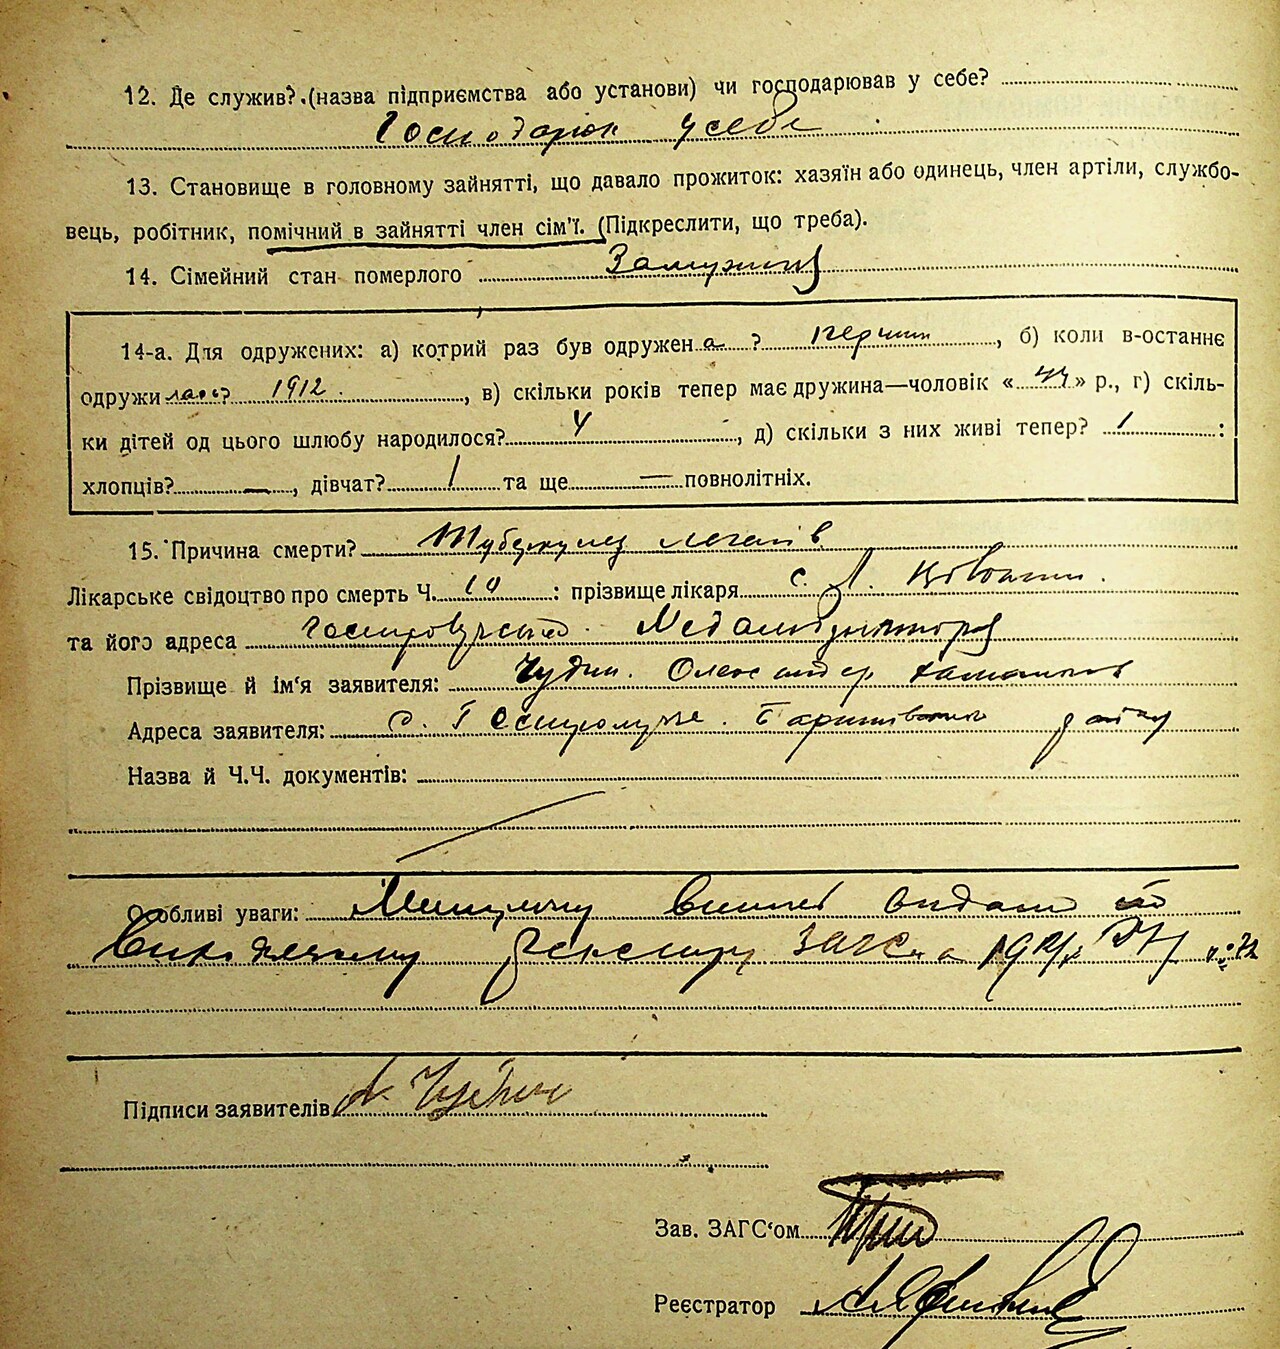 12. Де служив? (назва підприємства або установи) чи господарював у себе?
Господарюв у себе
13. Становище в головному зайнятті, що давало прожиток: хазяїн або одинець, член артіли, службо-
вець, робітник, помічний в зайнятті член сім'ї. (Підкреслити, що треба).
14. Сімейний стан померлого Замужня
14-а. Для одружених: а) котрий раз був одружен а ? перший, б) коли в-останнє
одружилась? 1912., в) скільки років тепер має дружина—чоловік «44» р., г) скіль-
ки дітей од цього шлюбу народилося? 4, д) скільки з них живі тепер? 1:
хлопців? —, дівчат? 1 та ще — повнолітніх.
15. Причина смерти? Туберкулез легенів
Лікарське свідоцтво про смерть Ч. 10: прізвище лікаря с. Л.
та його адреса
Прізвище й ім'я заявителя: Чудин. Олександер
Адреса заявителя: с. району
Назва й Ч.Ч. документів:
Особливі уваги: видати
ЗАГСа на
Підписи заявителів А. Чудин
Зав. ЗАГС'ом
Реєстратор